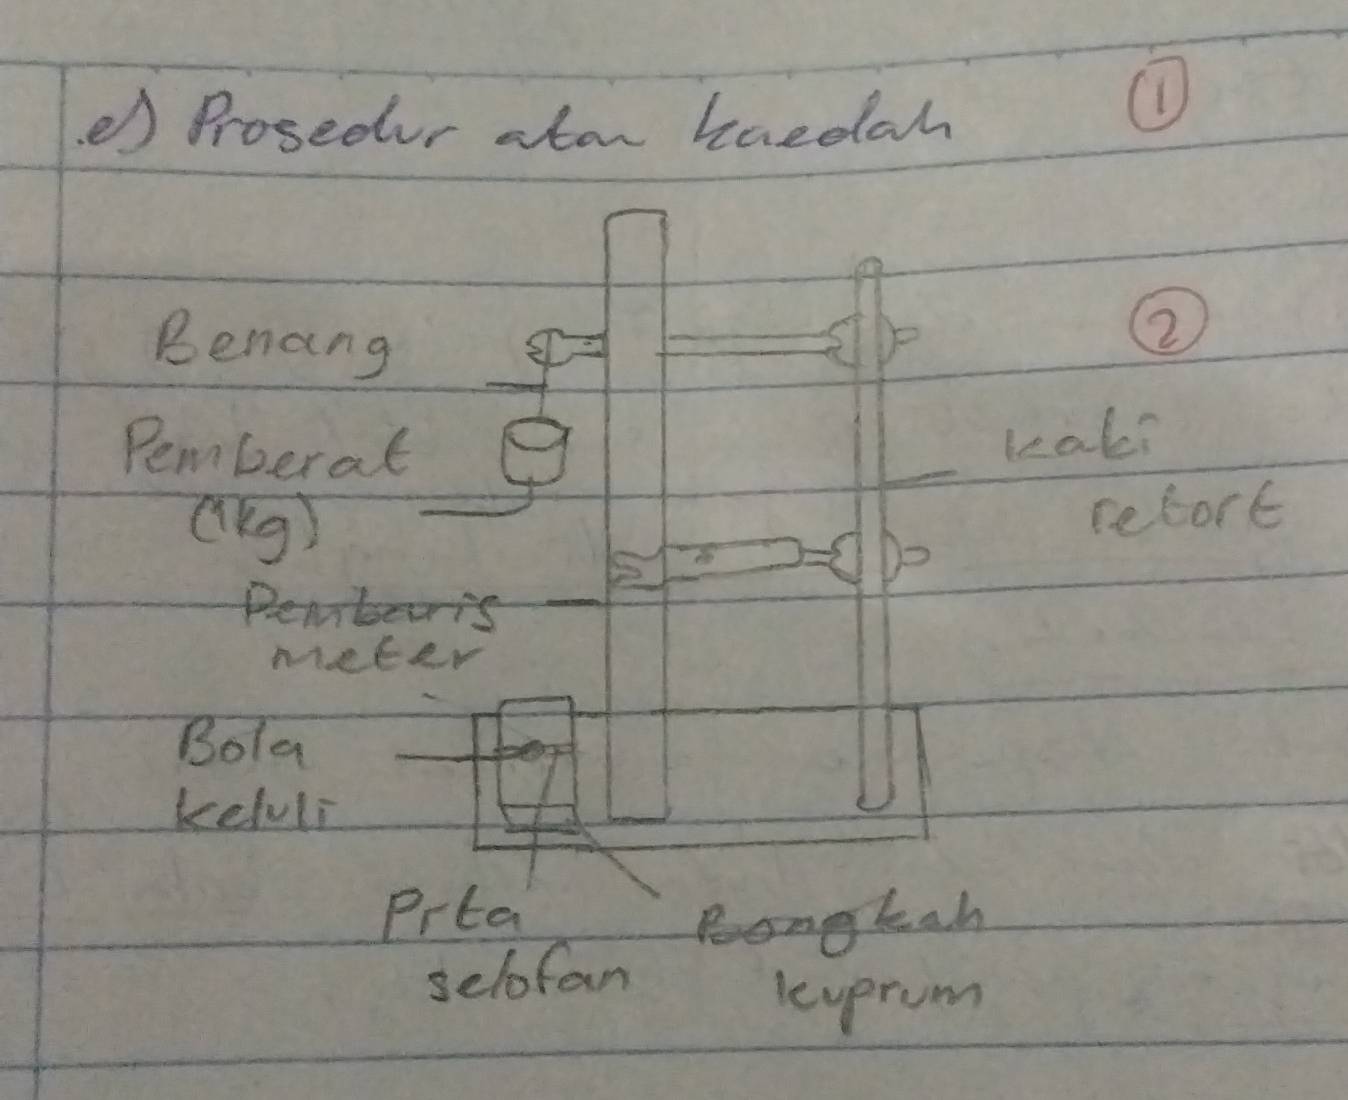 e) Prosedur atau kaedah
①
②
Benang
Pemberat
(1kg)
kaki
retort
Pembaris
meter
Bola
keluli
Prta
selofan
Bongkah
kuprum